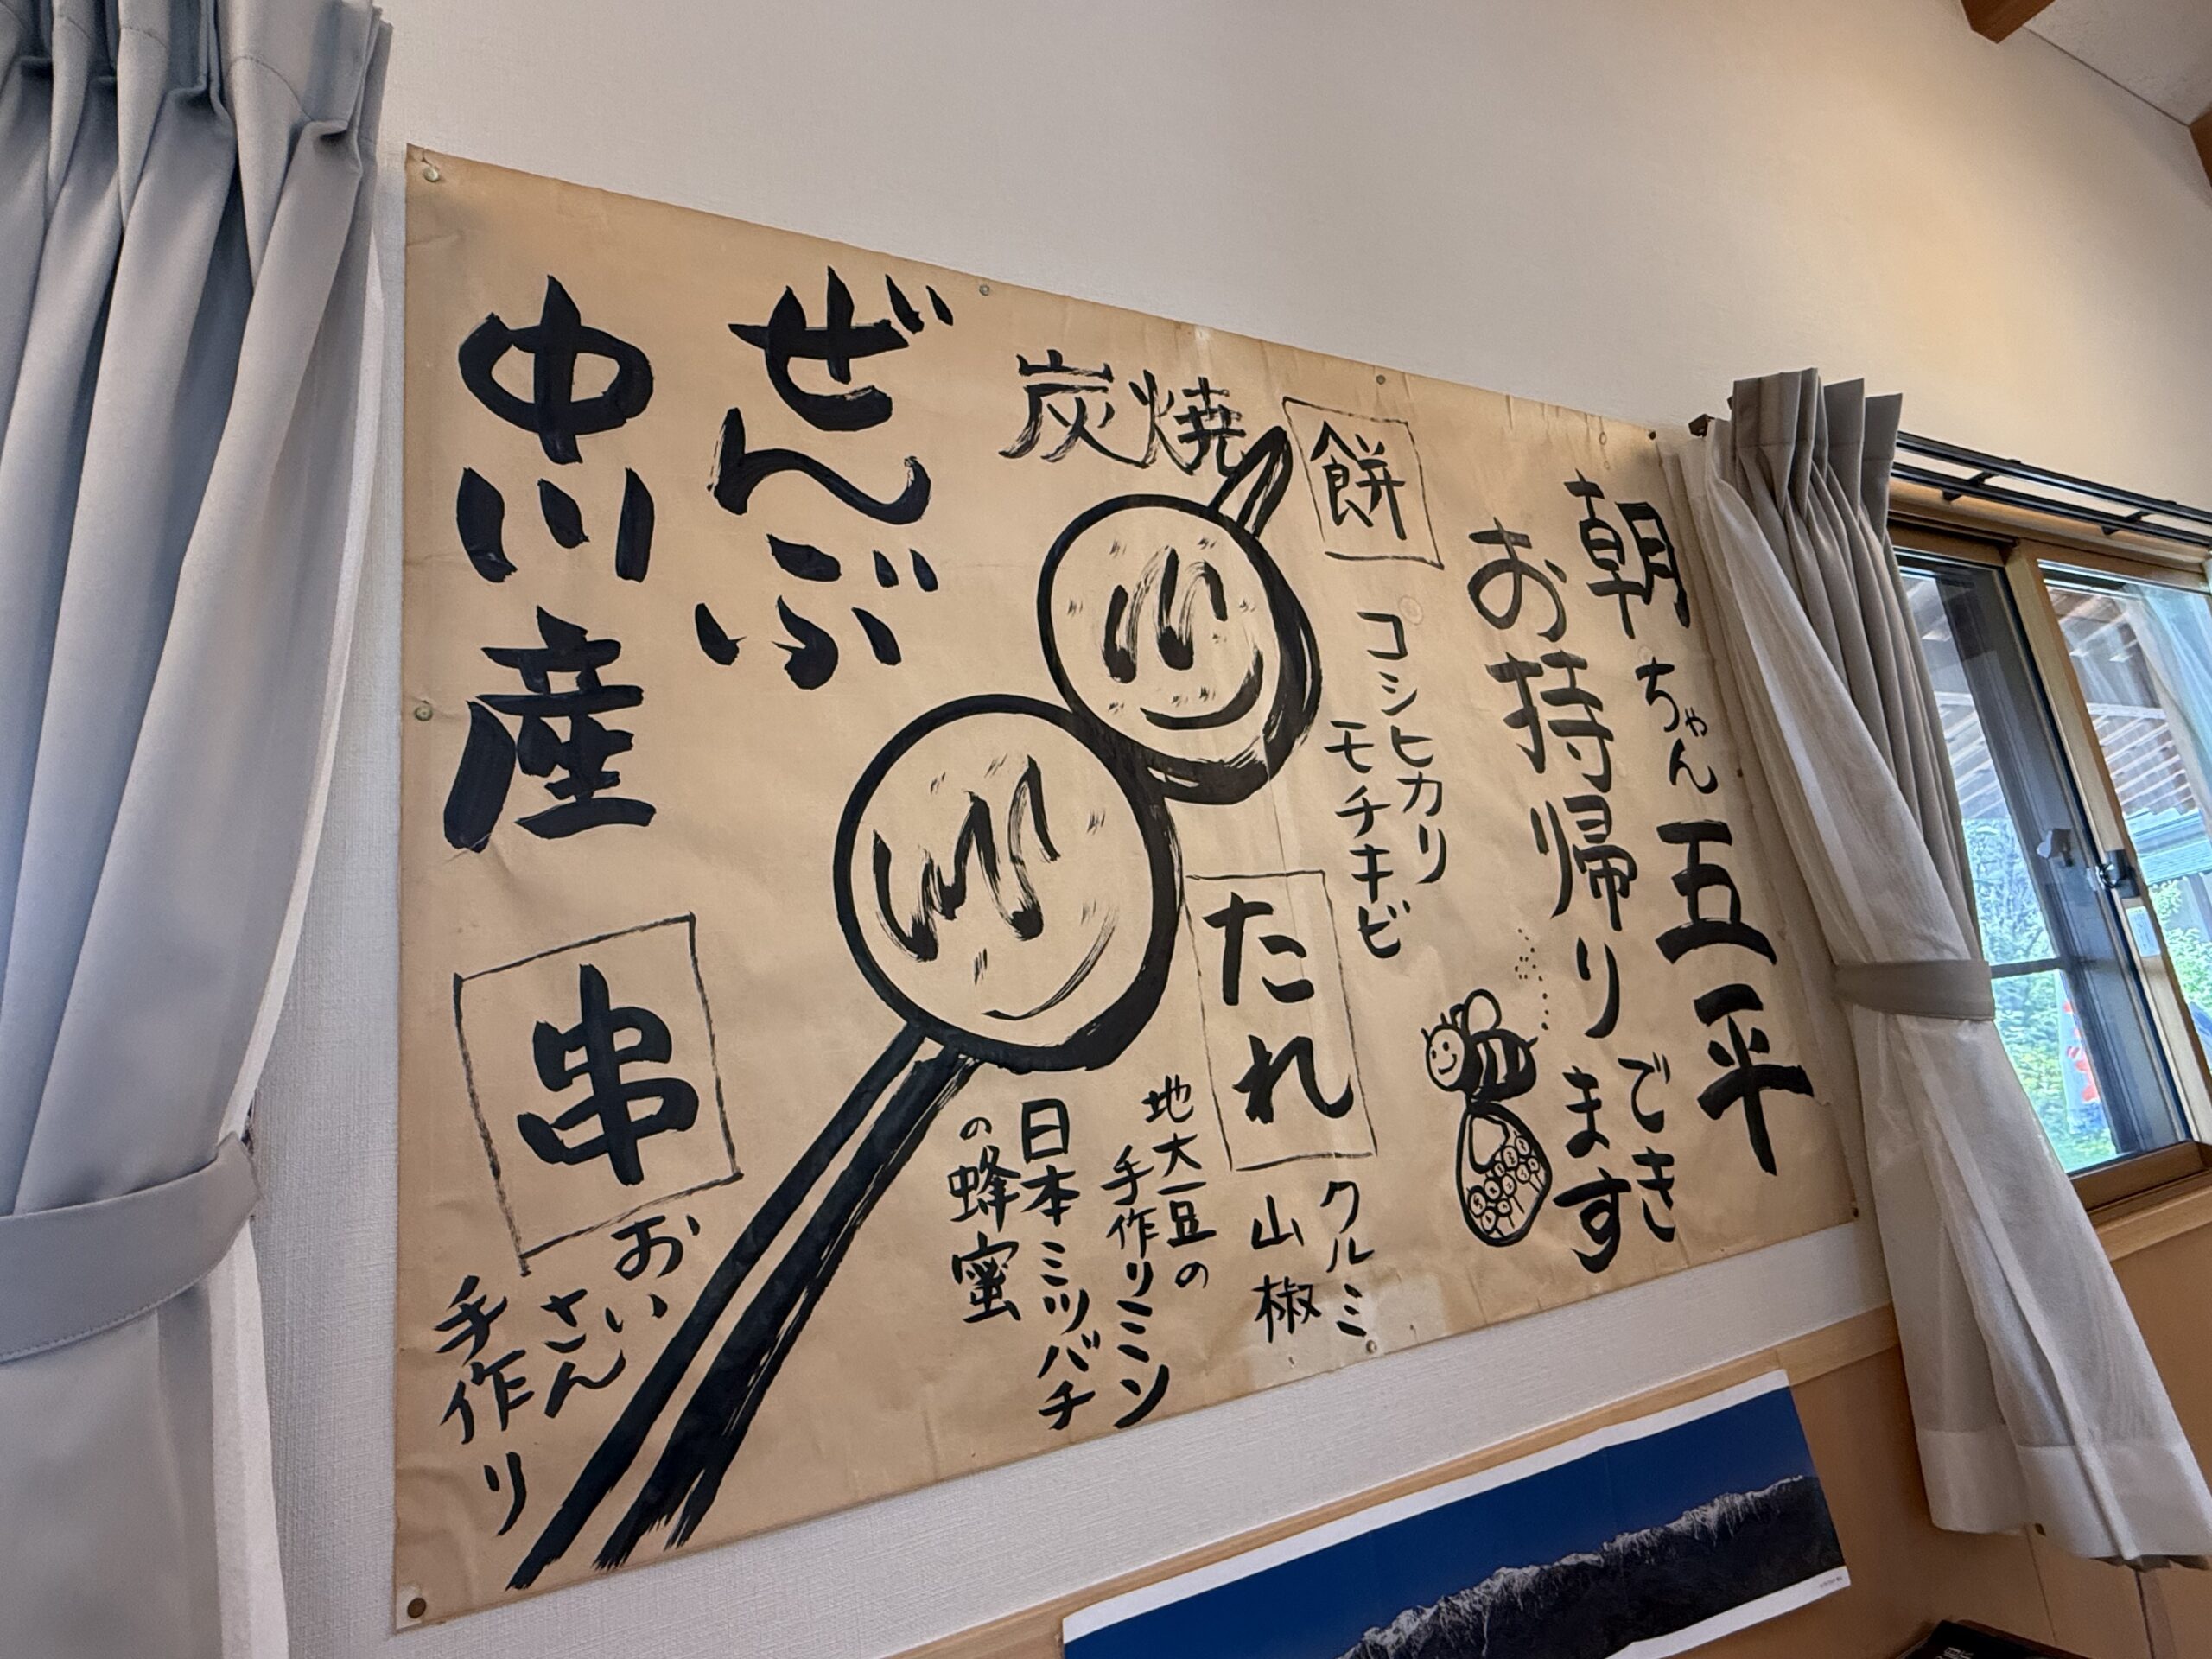 朝ちゃん五平
お持帰りできます
餅
コシヒカリ
モチキビ
炭焼
たれ
クルミ
山椒
地大豆の
手作りミソ
日本ミツバチ
の蜂蜜
ぜんぶ
中川産
串
おいさん
手作り